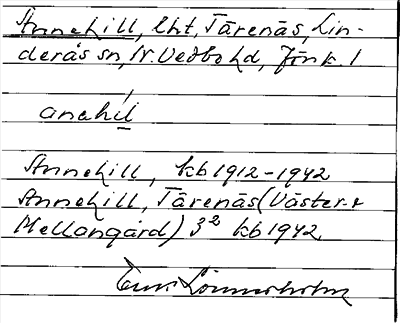 Annehill, lht, Tärenäs, Lin-
deräs sn, N. Vedbo hd, Jönk. l
anehil
Annehill, kb 1912-1942
Annehill, Tärenäs (Väster- &
Mellangård) 3² kb 1942
Lönnerholm